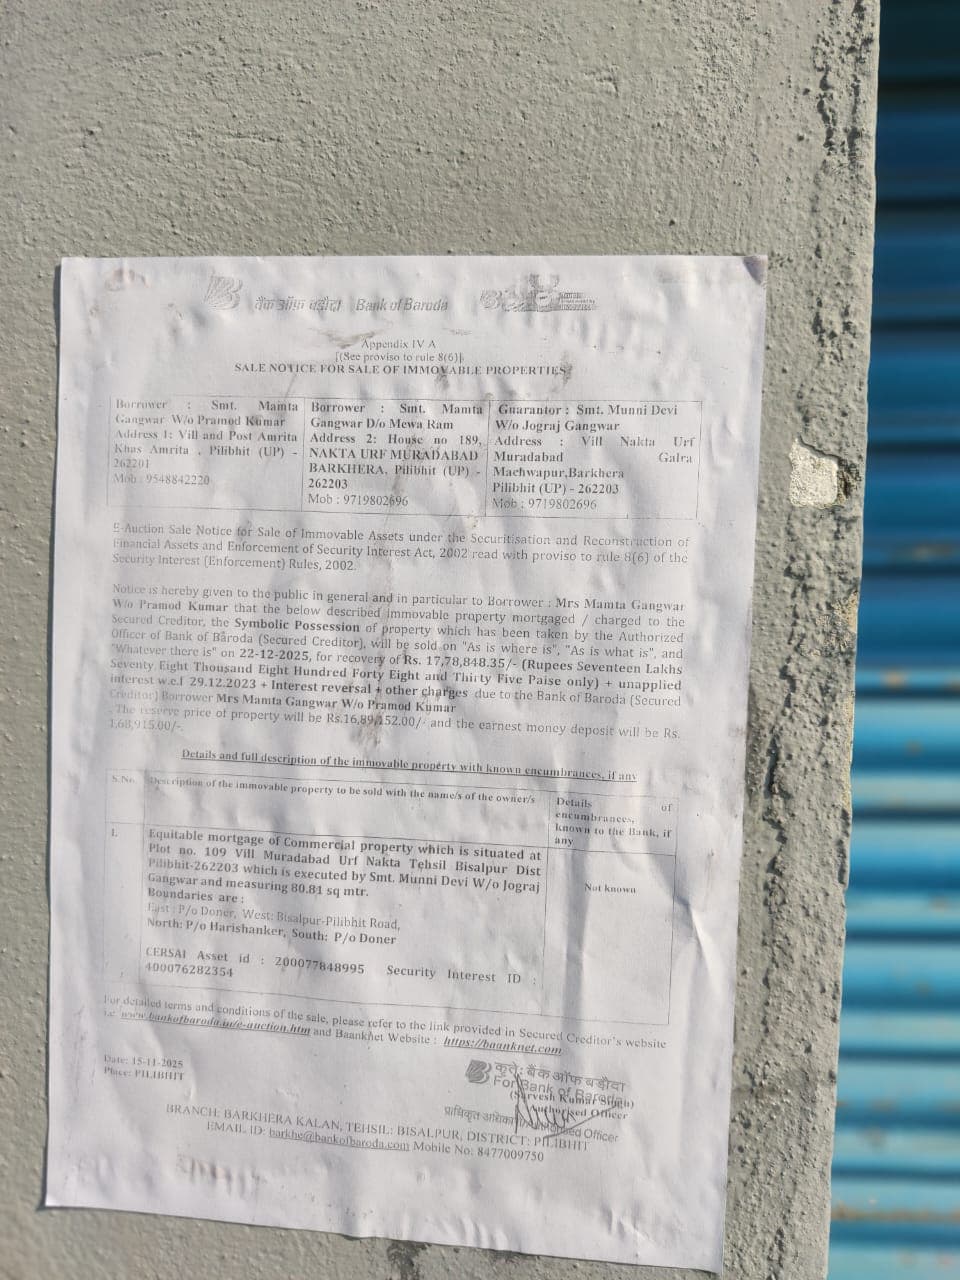 बैंक ऑफ़ बड़ौदा Bank of Baroda
Appendix IV A
[(See proviso to rule 8(6)]
SALE NOTICE FOR SALE OF IMMOVABLE PROPERTIES
Borrower : Smt. Mamta
Gangwar W/o Pramod Kumar
Address 1: Vill and Post Amrita
Khas Amrita , Pilibhit (UP) -
262201
Mob : 9548842220
Borrower : Smt. Mamta
Gangwar D/o Mewa Ram
Address 2: House no 189,
NAKTA URF MURADABAD
BARKHERA, Pilibhit (UP) -
262203
Mob : 9719802696
Guarantor : Smt. Munni Devi
W/o Jograj Gangwar
Address : Vill Nakta Urf
Muradabad Galra
Machwapur,Barkhera
Pilibhit (UP) - 262203
Mob : 9719802696
E-Auction Sale Notice for Sale of Immovable Assets under the Securitisation and Reconstruction of
Financial Assets and Enforcement of Security Interest Act, 2002 read with proviso to rule 8(6) of the
Security Interest (Enforcement) Rules, 2002.
Notice is hereby given to the public in general and in particular to Borrower : Mrs Mamta Gangwar
W/o Pramod Kumar that the below described immovable property mortgaged / charged to the
Secured Creditor, the Symbolic Possession of property which has been taken by the Authorized
Officer of Bank of Baroda (Secured Creditor), will be sold on "As is where is", "As is what is", and
"Whatever there is" on 22-12-2025, for recovery of Rs. 17,78,848.35/- (Rupees Seventeen Lakhs
Seventy Eight Thousand Eight Hundred Forty Eight and Thirty Five Paise only) + unapplied
interest w.e.f 29.12.2023 + Interest reversal + other charges due to the Bank of Baroda (Secured
Creditor) Borrower Mrs Mamta Gangwar W/o Pramod Kumar
. The reserve price of property will be Rs.16,89,152.00/- and the earnest money deposit will be Rs.
1,68,915.00/-.
Details and full description of the immovable property with known encumbrances, if any
S.No.
Description of the immovable property to be sold with the name/s of the owner/s
Details of
encumbrances,
known to the Bank, if
any
1.
Equitable mortgage of Commercial property which is situated at
Plot no. 109 Vill Muradabad Urf Nakta Tehsil Bisalpur Dist
Pilibhit-262203 which is executed by Smt. Munni Devi W/o Jograj
Gangwar and measuring 80.81 sq mtr.
Boundaries are :
East : P/o Doner, West: Bisalpur-Pilibhit Road,
North: P/o Harishanker, South: P/o Doner
CERSAI Asset id : 200077848995 Security Interest ID :
400076282354
Not known
For detailed terms and conditions of the sale, please refer to the link provided in Secured Creditor's website
i.e www.bankofbaroda.in/e-auction.htm and Baanknet Website : https://baanknet.com
Date: 15-11-2025
Place: PILIBHIT
कृते: बैंक ऑफ बड़ौदा
For Bank of Baroda
(Sarvesh Kumar Singh)
Authorised Officer
प्राधिकृत अधिकारी/Authorised Officer
BRANCH: BARKHERA KALAN, TEHSIL: BISALPUR, DISTRICT: PILIBHIT
EMAIL ID: barkhe@bankofbaroda.com Mobile No: 8477009750